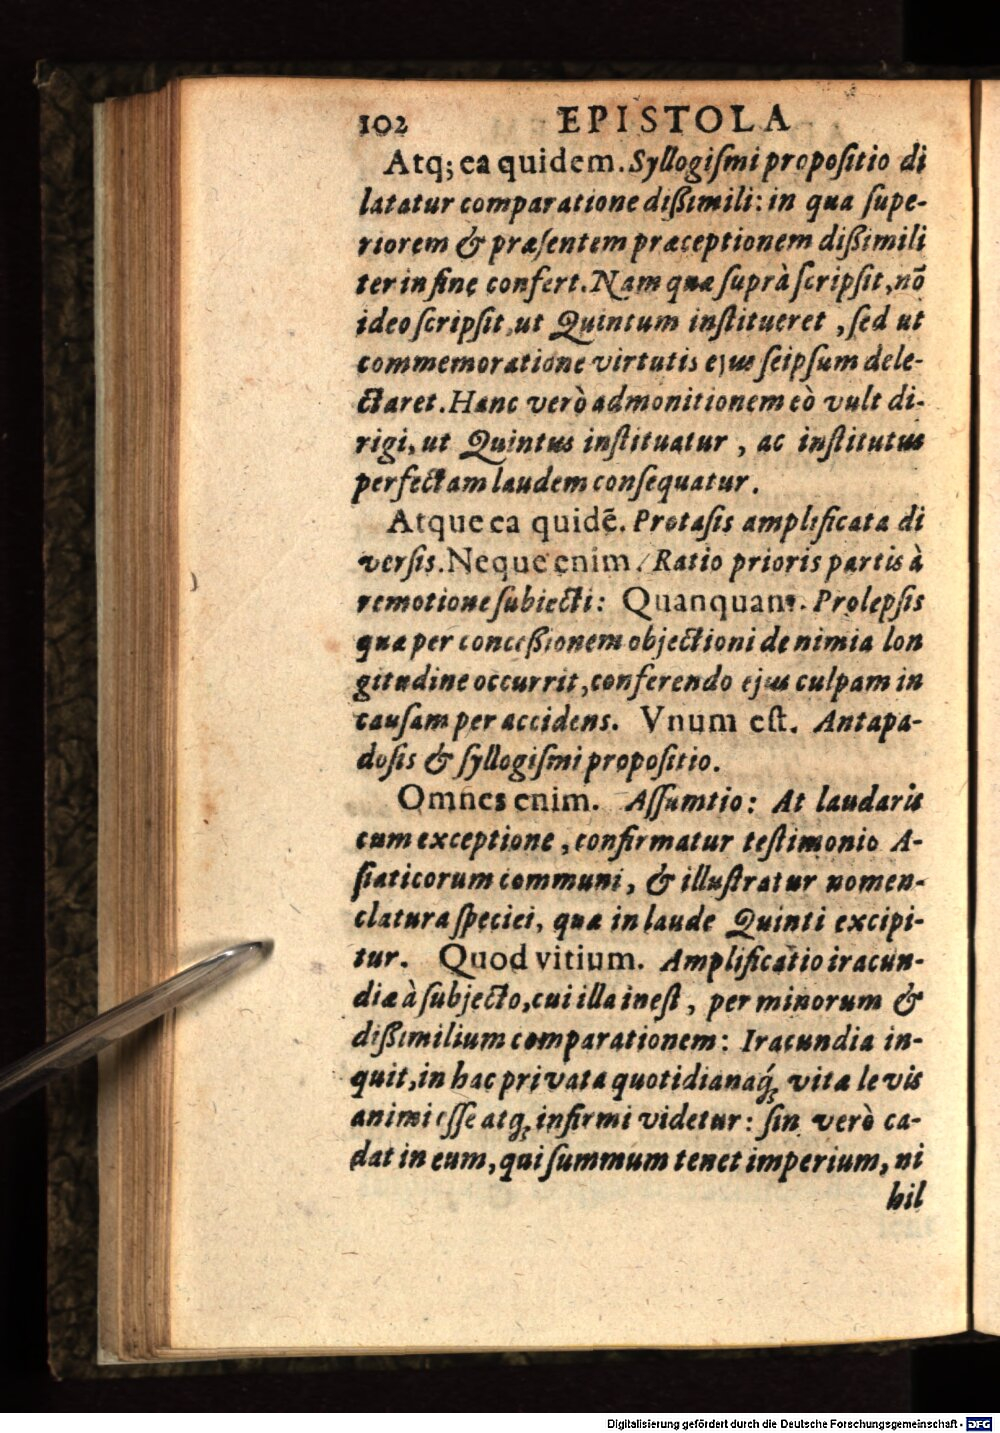 102 EPISTOLA
Atq; ea quidem. Syllogiſmi propoſitio di
latatur comparatione dißimili: in qua ſupe-
riorem & præſentem præceptionem dißimili
ter in fine confert. Nam quæ ſuprà ſcripſit, nõ
ideo ſcripſit, ut Quintum inſtitueret, ſed ut
commemoratione virtutis ejus ſeipſum dele-
ctaret. Hanc verò admonitionem eò vult di-
rigi, ut Quintus inſtituatur, ac inſtitutus
perfectam laudem conſequatur.
Atque ea quidẽ. Protaſis amplificata di
verſis. Neque enim. Ratio prioris partis à
remotione ſubiecti: Quanquam. Prolepſis
quæ per conceßionem objectioni de nimia lon
gitudine occurrit, conferendo ejus culpam in
cauſam per accidens. Vnum eſt. Antapa-
doſis & ſyllogiſmi propoſitio.
Omnes enim. Aſſumtio: At laudaris
cum exceptione, confirmatur teſtimonio A-
ſiaticorum communi, & illuſtratur nomen-
clatura ſpeciei, quæ in laude Quinti excipi-
tur. Quod vitium. Amplificatio iracun-
diæ à ſubjecto, cui illa ineſt, per minorum &
dißimilium comparationem: Iracundia in-
quit, in hac privata quotidianaq́; vita levis
animi eſſe atq; infirmi videtur: ſin verò ca-
dat in eum, qui ſummum tenet imperium, ni
hil
Digitalisierung gefördert durch die Deutsche Forschungsgemeinschaft - DFG